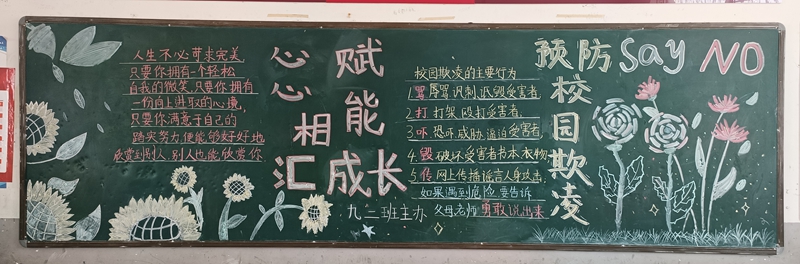 人生不必苛求完美
只要你拥有一个轻松
自我的微笑,只要你拥有
一份向上进取的心境,
只要你满意于自己的
踏实努力,便能够好好地
欣赏到别人,别人也能欣赏你
心心相汇
赋能成长
九二班主办
预防 Say NO
校园欺凌
校园欺凌的主要行为
1.骂 辱骂、讽刺、诋毁受害者
2.打 打架、殴打受害者.
3.吓 恐吓、威胁、逼迫受害者
4.毁 破坏受害者书本、衣物
5.传 网上传播谣言人身攻击,
如果遇到危险,要告诉
父母老师 勇敢说出来